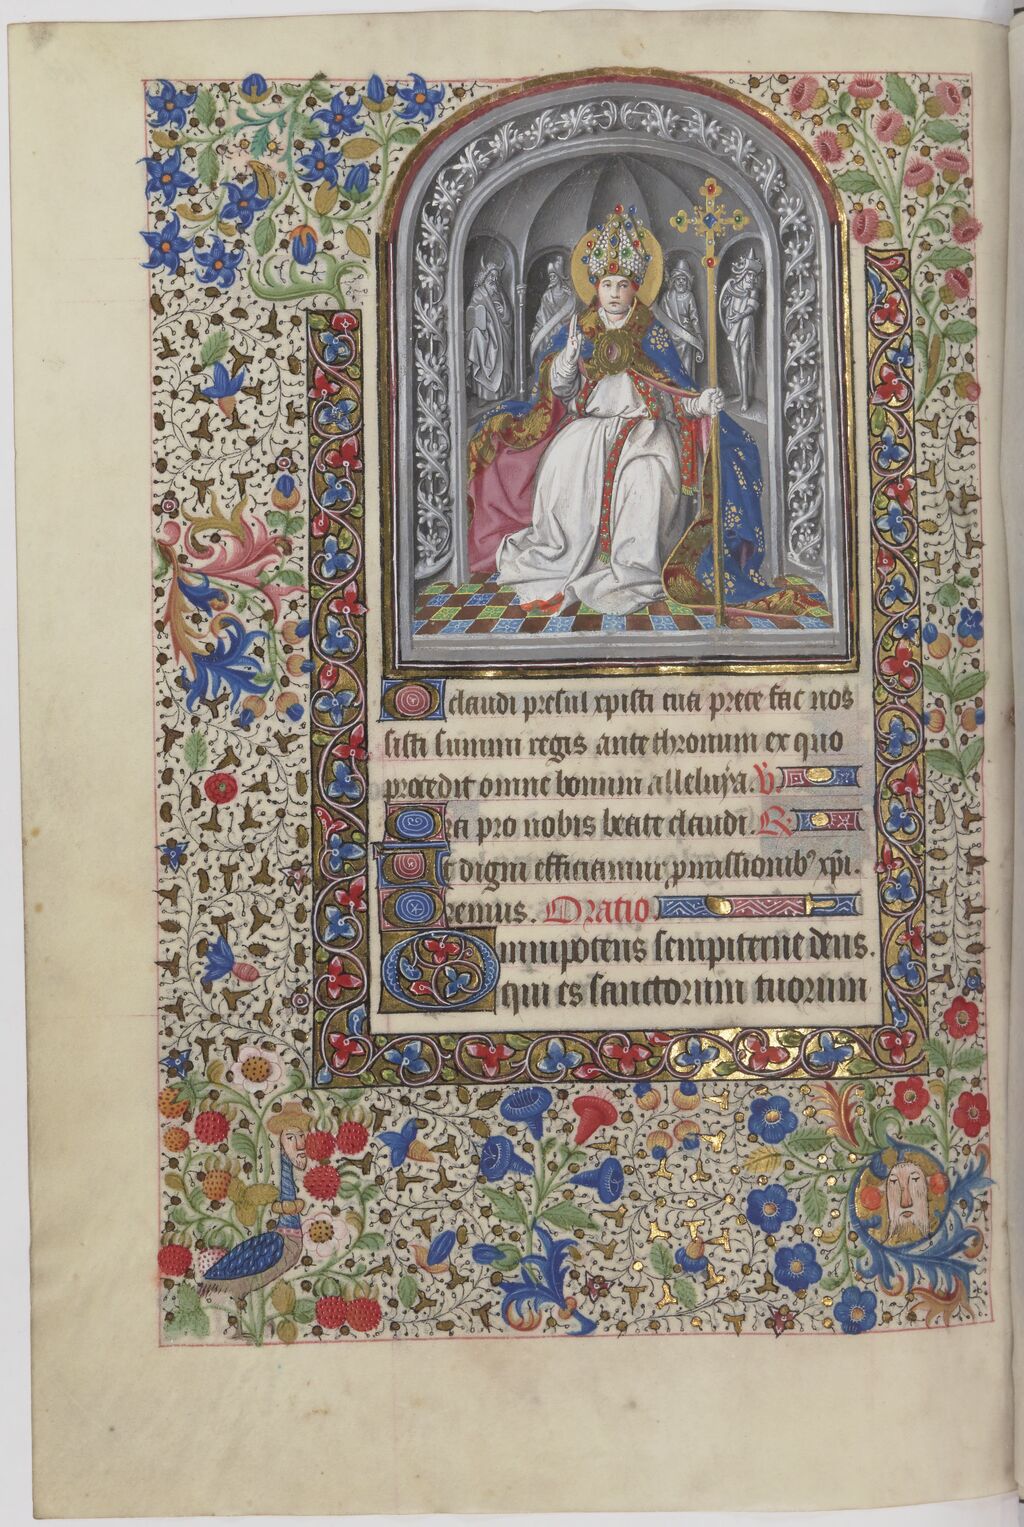 O claudi presul xpisti tua prece fac nos
sisti summi regis ante thronum ex quo
procedit omne bonum alleluya. V.
Ora pro nobis beate claudi. R.
Ut digni efficiamur pmissionibꝰ xpi.
Oremus. Oratio.
Omnipotens sempiterne deus.
qui es sanctorum tuorum